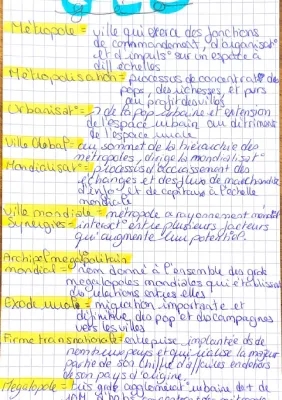 Métropole = ville qui exerce des fonctions
de commandement, d'organisat°
et d'impuls° sur un espace à
diff échelles
Métropolisation = processus de concentrat° des
pops, des richesses, et pvrs
au profit des villes
Urbanisat° = ↗ de la pop urbaine et extension
de l'espace urbain au détriment
de l'espace rurale
Ville Global = au sommet de la hiérarchie des
métropoles, dirige la mondialisat°
Mondialisat° = processus d'accroissement des
échanges et des flux de marchandise
d'info, et de capitaux à l'échelle
mondiale
Ville mondiale = métropole a rayonnement mondial
Synergies = interact° entre plusieurs facteurs
qui augmente leur potentiel.
Archipel mégalopolitain
mondial = nom donné à l'ensemble des gde
mégalopoles mondiales qui établissent
des relations entre elles
Exode rurale = migration importante et
définitive, des pop et des campagnes
vers les villes
Firme transnationale = entreprise implantée ds de
nombreux pays et qui réalise la majeur
partie de son chiffre d'affaires en dehors
de son pays d'origine.
Mégalopole = très grde agglomérat° urbaine, de + de